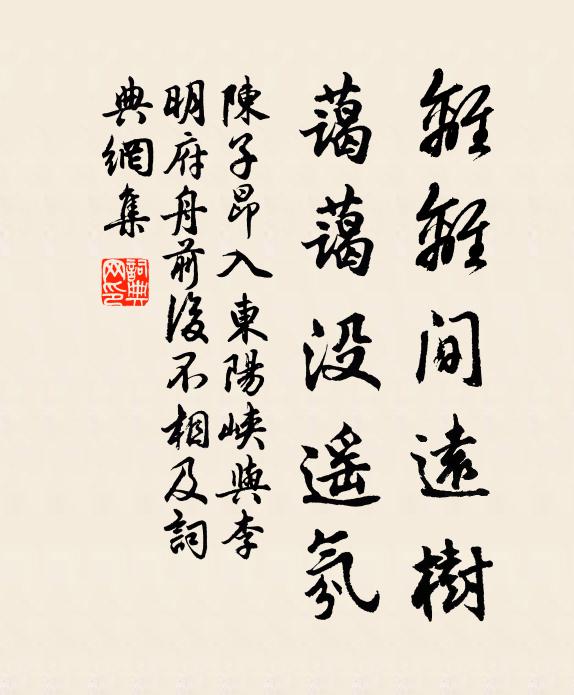 離離間遠樹
藹藹没遥氛
陳子昂入東陽峽與李
明府舟前後不相及詞
典網集
詞典网印